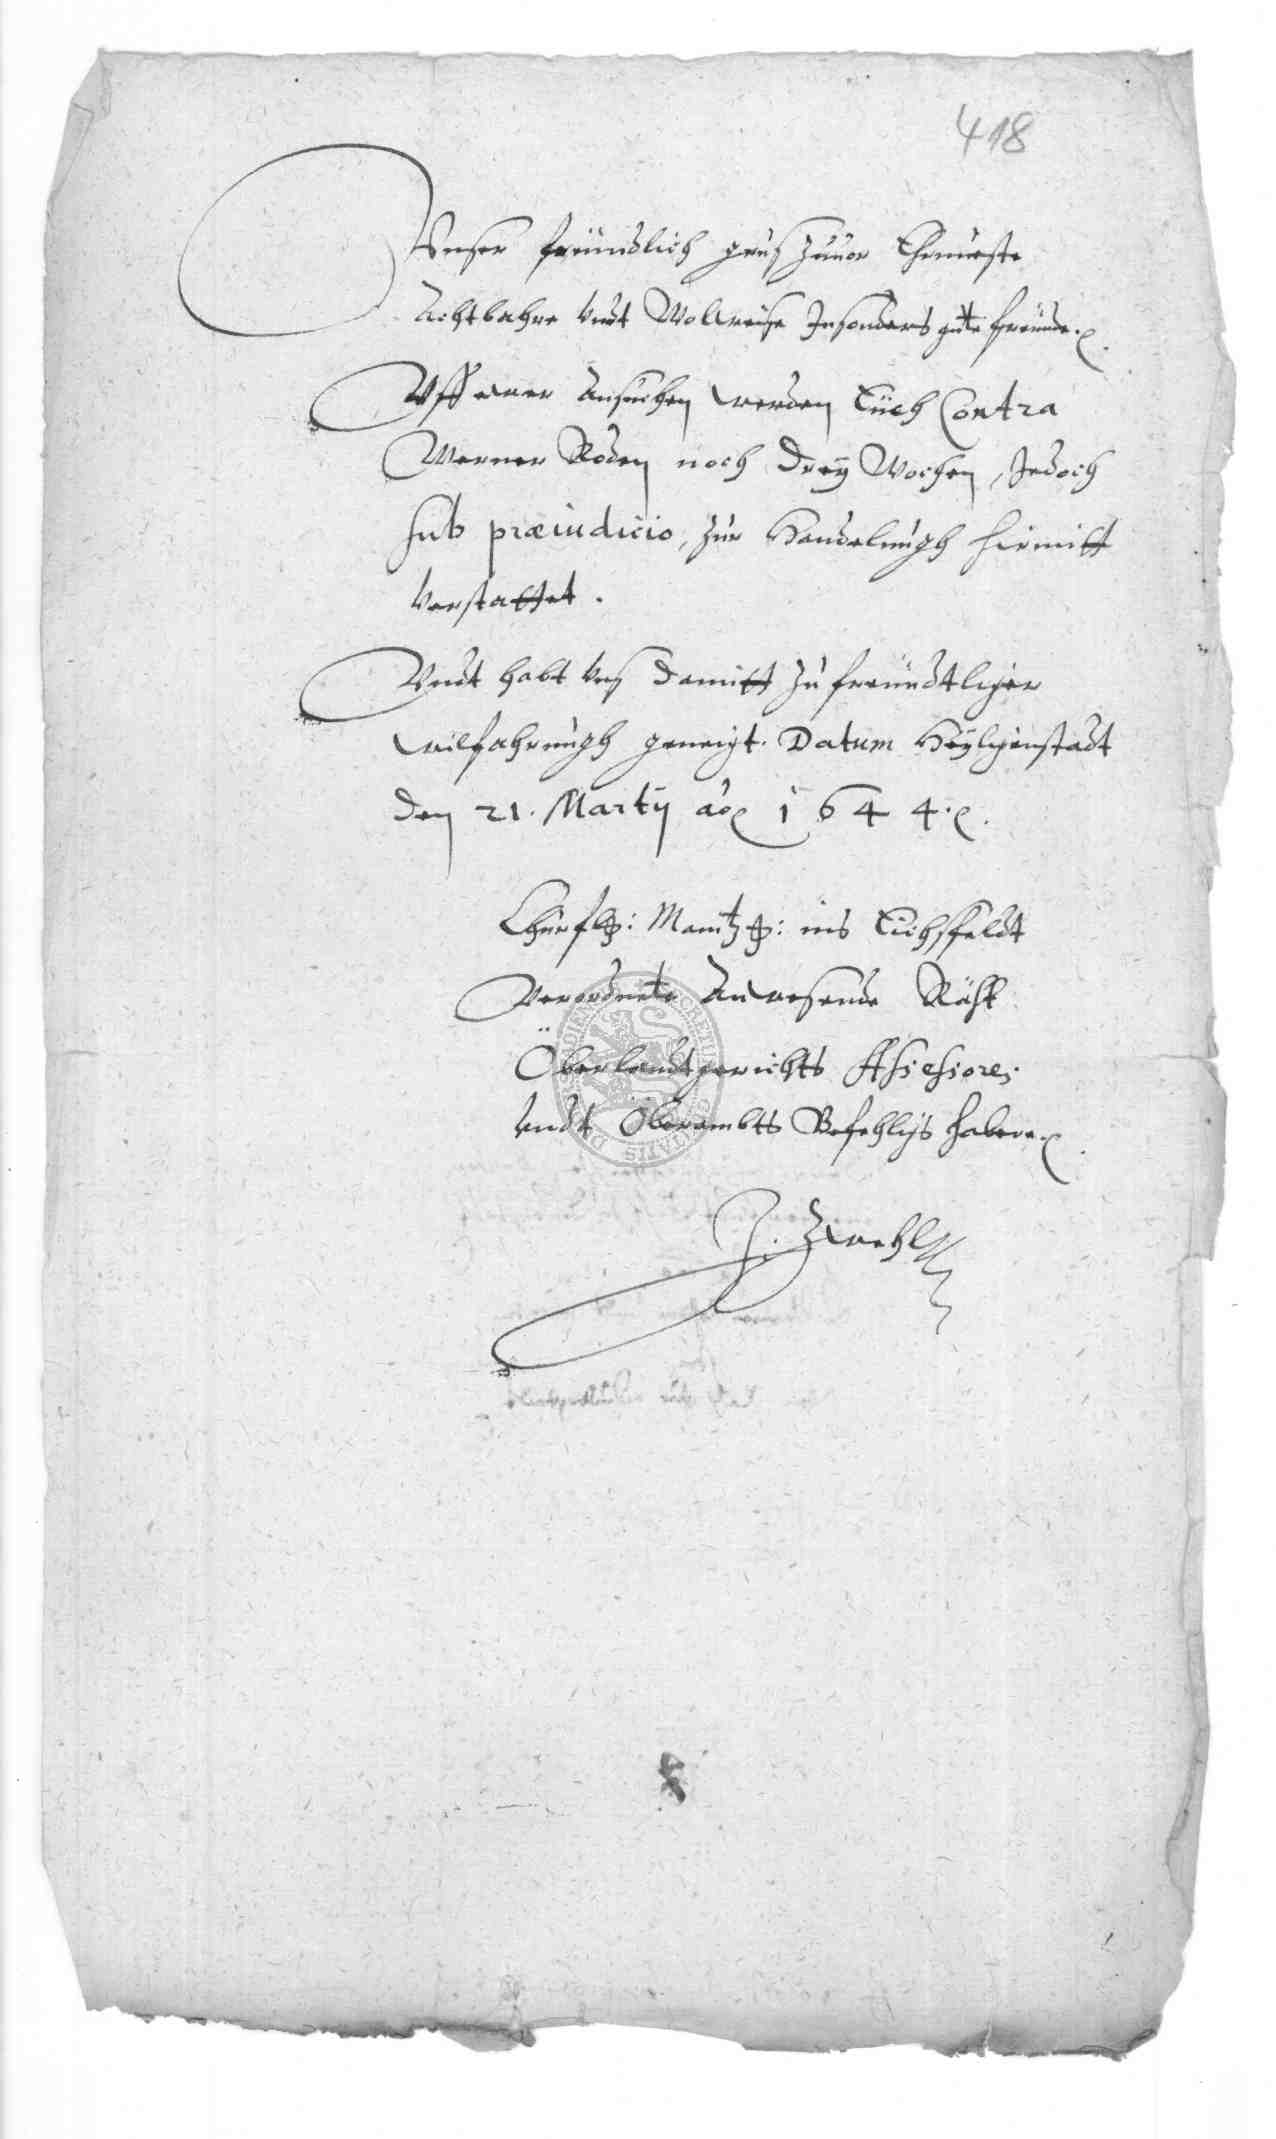 418
Vnser freundlich grus zuuor Ehrnueste
Achtbahre vndt Wolweise Insonders gute freunde.
Vff ewer Ansuchen werden Euch Contra
Werner Roden noch drey Wochen, Jedoch
sub præiudicio, zur Handelungh hirmitt
verstattet.
Vndt habt vns damitt zu freundtliger
wilfahrungh geneigt. Datum Heyligenstadt
den 21. Martij ao 1644.
Churfl: Maintz: ins Eichsfeldt
verordnete Anwesende Räht
Oberlandtgerichts Assessores
vndt Oberambts Befehlighabere
J. Zwehl